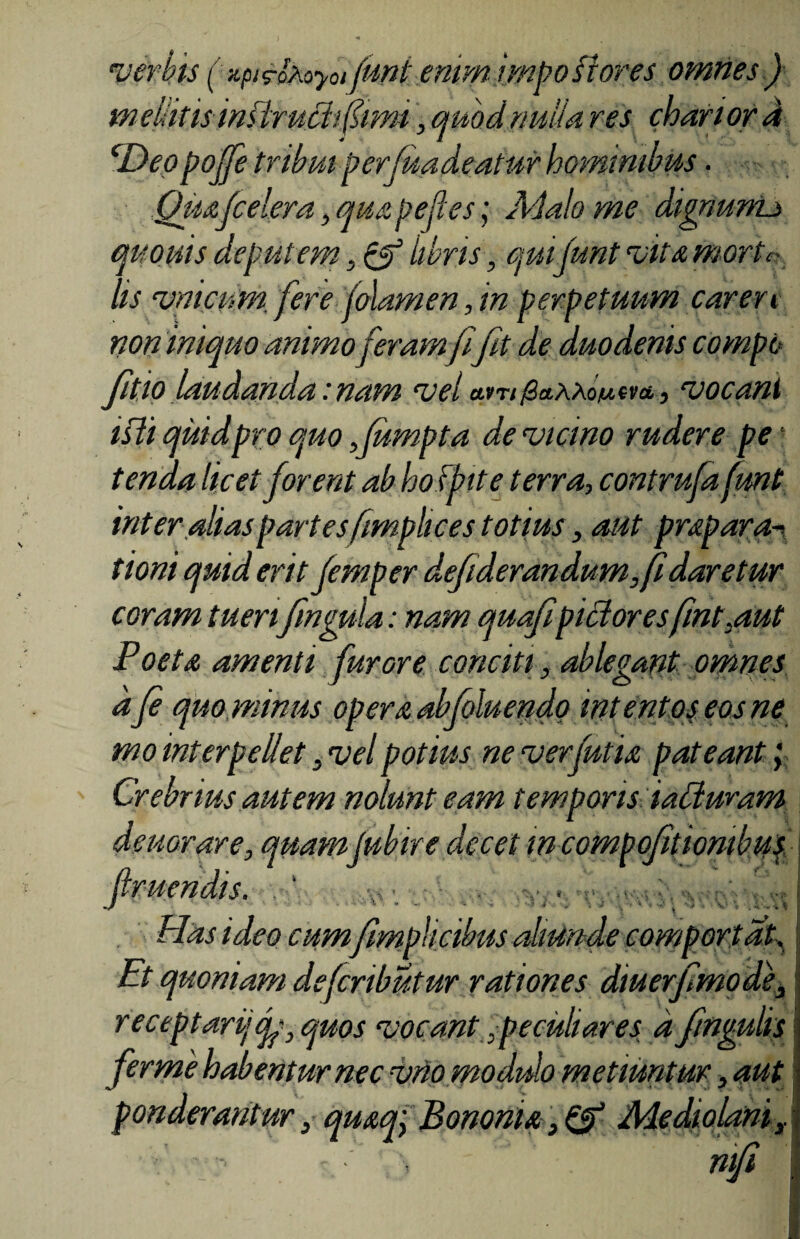 verbis ( χρηςόλογοι ſunt enim impoſtores omnes )
mellitis inſtructißimi, quòd nulla res charior à
Deo poſſe tribui perſuadeatur hominibus.
Quæ ſcelera, quæ peſtes; Malo me dignum
quouis deputem, & libris, qui ſunt vitæ morta
lis vnicum ferè ſolamen, in perpetuum carere
non iniquo animo feram ſi ſit de duodenis compo
ſitio laudanda: nam vel ἀντιβαλλόμενα, vocant
iſti quid pro quo, ſumpta de vicino rudere pe
tenda licet forent ab hoſpite terra, contruſa ſunt
inter alias partes ſimplices totius, aut præpara-
tioni quid erit ſemper deſiderandum, ſi daretur
coram tueri ſingula: nam quaſi pictores ſint, aut
Poetæ amenti furore conciti, ablegant omnes
à ſe quo minus operæ abſoluendo intentos eos ne
mo interpellet, vel potius ne verſutiæ pateant;
Crebrius autem nolunt eam temporis iacturam
deuorare, quam ſubire decet in compoſitionibus
ſtruendis.
Has ideo cum ſimplicibus aliunde comportāt,
Et quoniam deſcribūtur rationes diuerſimodè,
receptarijq;, quos vocant, peculiares à ſingulis
fermè habentur nec vno modulo metiuntur, aut
ponderantur, quæq; Bononiæ, & Mediolani,
niſi